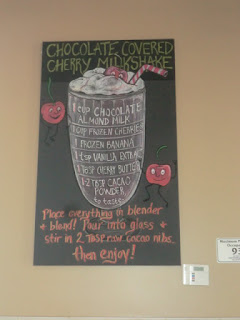 CHOCOLATE COVERED
CHERRY MILKSHAKE
1 CUP CHOCOLATE
ALMOND MILK
1 CUP FROZEN CHERRIES
1 FROZEN BANANA
1 tsp VANILLA EXTRACT
1 TBSP CHERRY BUTTER
1-2 TBSP CACAO
POWDER
to taste
Place everything in blender
blend! Pour into glass
stir in 2 TBSP raw cacao nibs.
then enjoy!